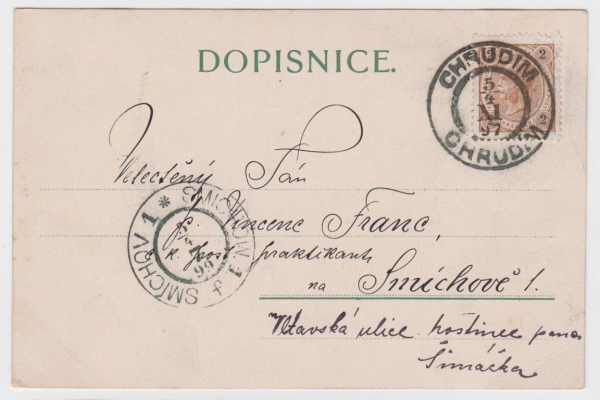 DOPISNICE.
CHRUDIM
CHRUDIM
XI
97
2
2
Velectěný Pán
p. Vincenc Franc,
c. k. post. praktikant
na Smíchově 1.
SMICHOW 1
SMÍCHOV 1
Vltavská ulice hostinec pana
Šimáčka